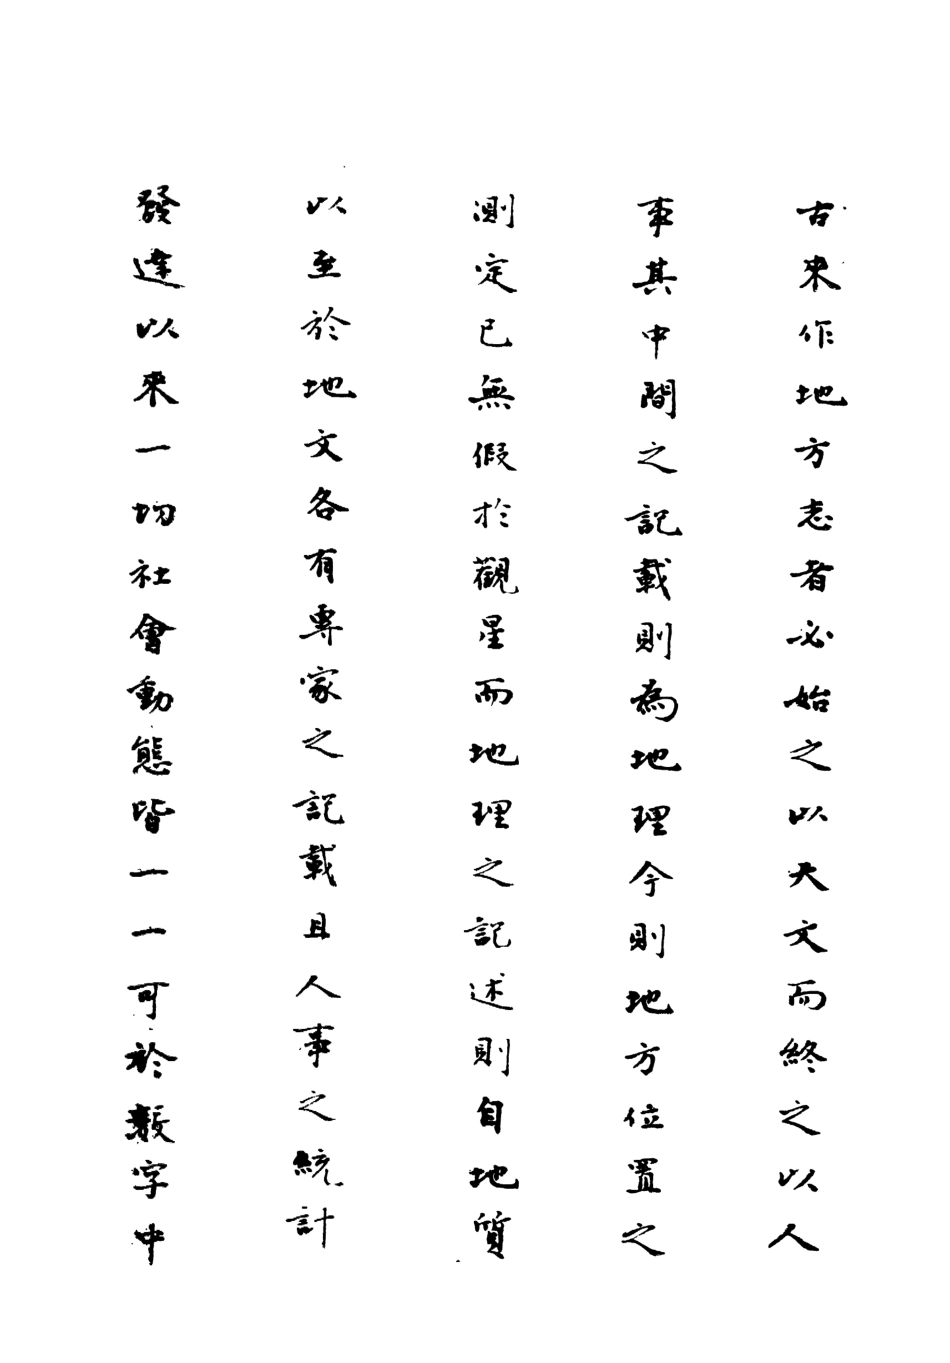 古來作地方志者必始之以天文而終之以人
事其中間之記載則為地理今則地方位置之
測定已無假於觀星而地理之記述則自地質
以至於地文各有專家之記載且人事之統計
發達以來一切社會動態皆一一可於數字中